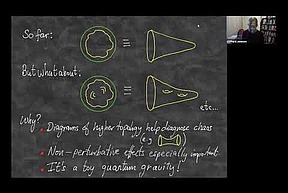 So far:
=
But what about:
=
etc...
Why?
• Diagrams of higher topology help diagnose chaos
(e.g. )
• Non-perturbative effects especially important
• It's a toy quantum gravity!